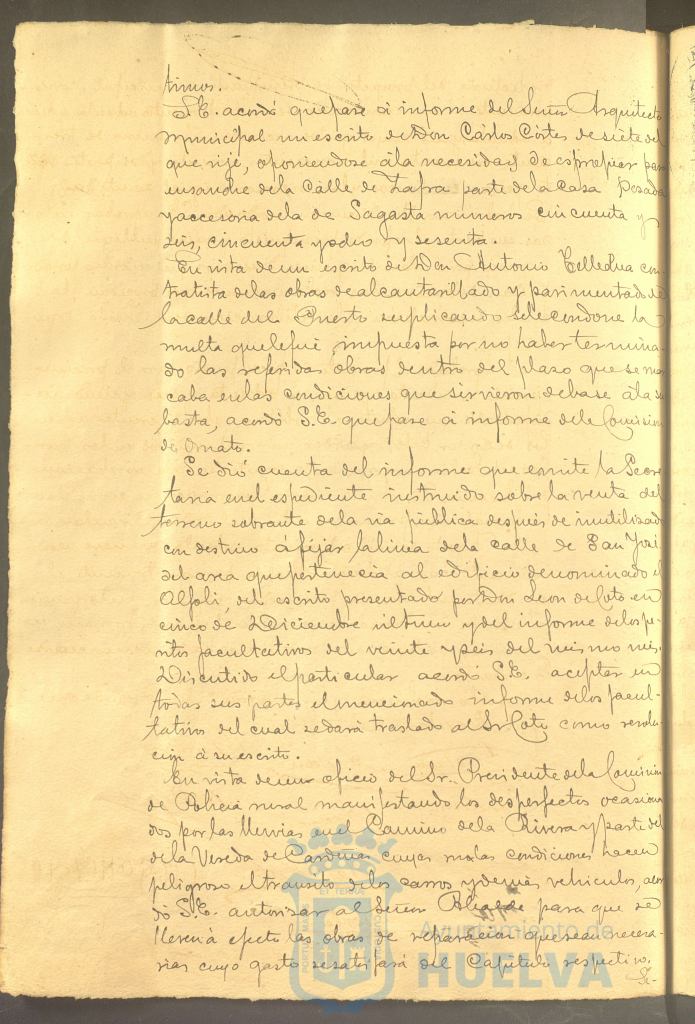 timos.
S.E. acordó que pase á informe del Señor Arquitecto
Municipal un escrito de Don Cárlos Córtes de siete del
que rije, oponiendose á la necesidad de espropiar para
ensanche de la Calle de Zafra parte de la Casa Posada
y accesoria de la de Sagasta numeros cincuenta y
seis, cincuenta y ocho y sesenta.
En vista de un escrito de Don Antonio con
tratista de las obras de alcantarillado y pavimentado de
la calle del Puerto suplicando se le condone la
multa que le fué impuesta por no haber termina
do las referidas obras dentro del plazo que se mar
caba en las condiciones que sirvieron de base á la su
basta, acordó S.E. que pase á informe de la Comision
de Ornato.
Se dió cuenta del informe que emite la Secre
taria en el espediente instruido sobre la venta del
terreno sobrante de la via pública despues de inutilizado
con destino á fijar la linea de la calle de San José
del area que pertenecia al edificio denominado el
Alfoli, del escrito presentado por Don Leon de Coto en
cinco de Diciembre último y del informe de los pe
ritos facultativos del veinte y seis del mismo mes.
Discutido el particular acordó S.E. aceptar en
todas sus partes el mencionado informe de los facul-
tativos del cual se dará traslado al Sr Coto como resolu
cion á su escrito.
En vista de un oficio del Sr. Presidente de la Comision
de Policia rural manifestando los desperfectos ocasiona
dos por las lluvias en el Camino de la Rivera y parte del
de la Vereda de Cardenas cuyas malas condiciones hacen
peligroso el transito de los carros y demás vehiculos, acor
dó S.E. autorizar al Señor Alcalde para que se
lleven á efecto las obras de reparacion que sean necesa-
rias cuyo gasto se satisfará del Capitulo respectivo.
Se-
Ayuntamiento de
HUELVA